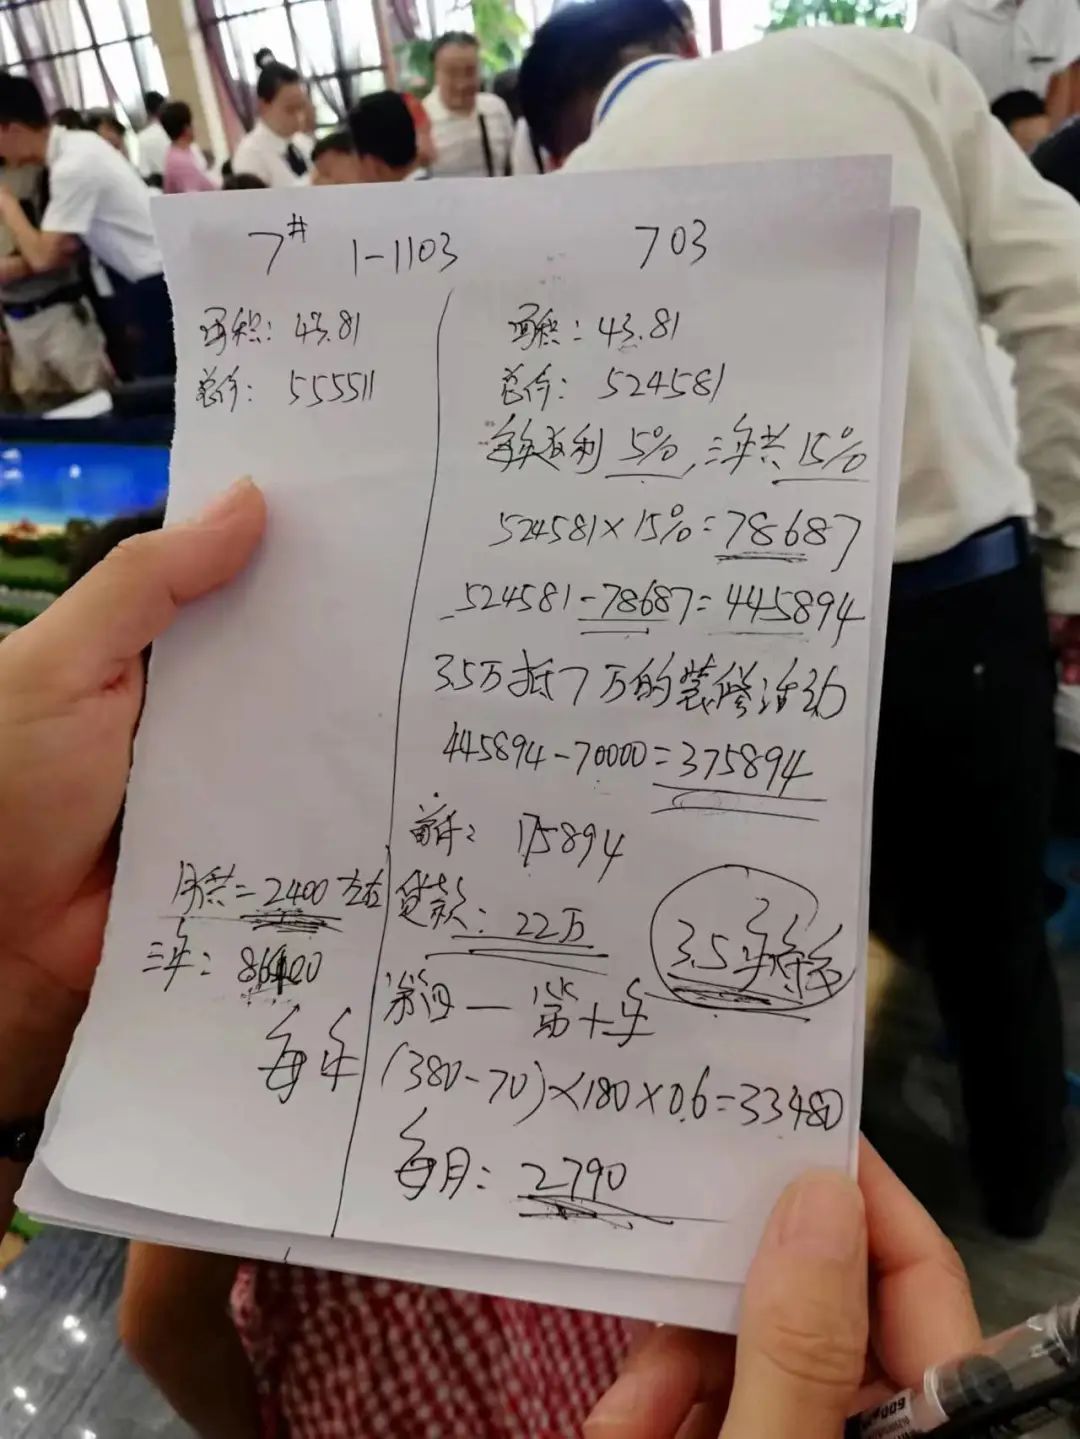 7# 1-1103
面积: 43.81
总价: 555511
703
面积: 43.81
总价: 524581
每年返利 5%, 三年共 15%
524581×15%=78687
524581-78687=445894
3.5万抵7万的装修活动
445894-70000=375894
首付: 175894
月供=2400左右
贷款: 22万
三年: 86400
3.5年
第四一第十年
每年 (380-70)×180×0.6=33480
每月: 2790